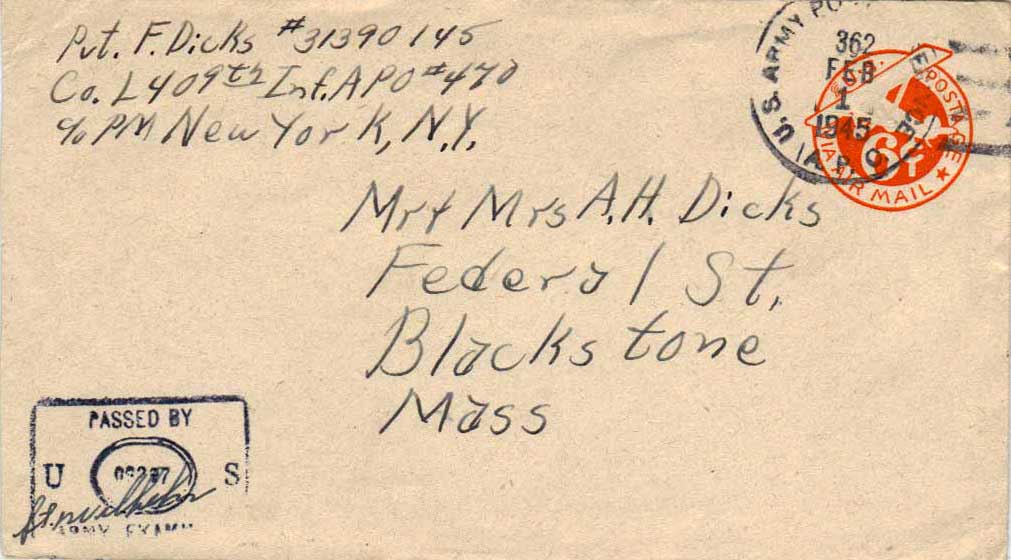 Pvt. F. Dicks #31390145
Co. L 409th Inf. APO #470
c/o PM New York, N.Y.
U.S. ARMY
362
FEB
1
1945
A.P.O.
POSTAGE
6¢
VIA AIR MAIL
Mr + Mrs A.H. Dicks
Federal St.
Blackstone
Mass
PASSED BY
U S
ARMY